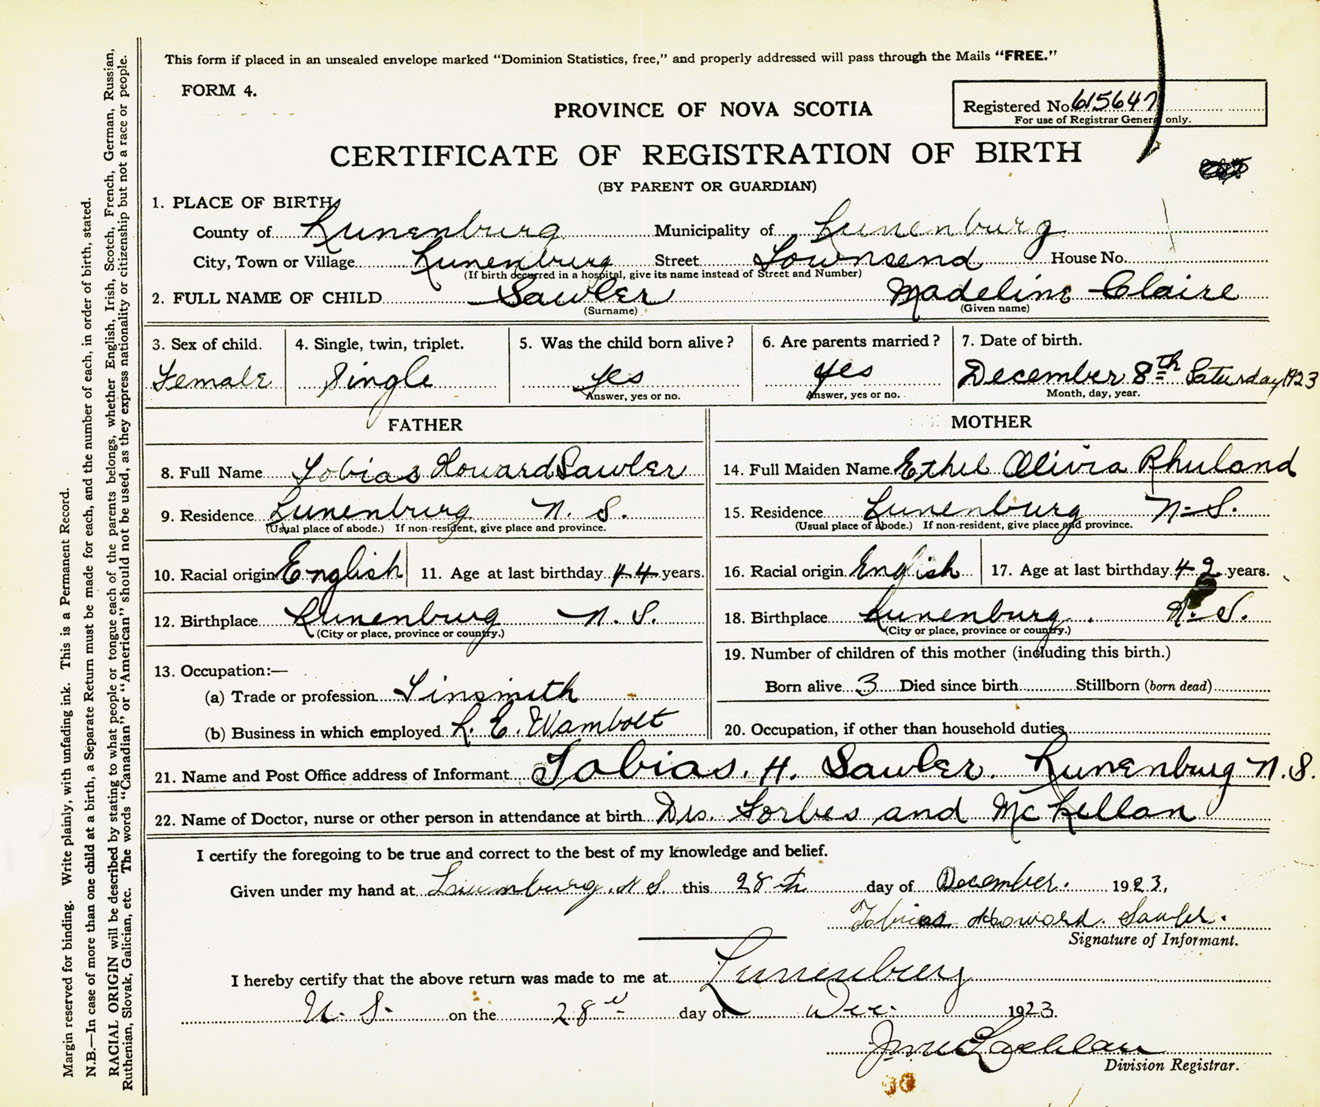 This form if placed in an unsealed envelope marked "Dominion Statistics, free," and properly addressed will pass through the Mails "FREE."
FORM 4.
PROVINCE OF NOVA SCOTIA
Registered No. 615647
For use of Registrar General only.
CERTIFICATE OF REGISTRATION OF BIRTH
(BY PARENT OR GUARDIAN)
1. PLACE OF BIRTH,
County of Lunenburg Municipality of Lunenburg
City, Town or Village Lunenburg Street Townsend House No.
(If birth occurred in a hospital, give its name instead of Street and Number)
2. FULL NAME OF CHILD Sawler Madeline Claire
(Surname) (Given name)
3. Sex of child. 4. Single, twin, triplet. 5. Was the child born alive? 6. Are parents married? 7. Date of birth.
Female Single yes yes December 8th Saturday 1923
Answer, yes or no. Answer, yes or no. Month, day, year.
FATHER MOTHER
8. Full Name Tobias Howard Sawler 14. Full Maiden Name Ethel Olivia Rhuland
9. Residence Lunenburg N. S. 15. Residence Lunenburg N. S.
(Usual place of abode.) If non-resident, give place and province. (Usual place of abode.) If non-resident, give place and province.
10. Racial origin English 11. Age at last birthday 44 years. 16. Racial origin English 17. Age at last birthday 42 years.
12. Birthplace Lunenburg N. S. 18. Birthplace Lunenburg N. S.
(City or place, province or country.) (City or place, province or country.)
13. Occupation:— 19. Number of children of this mother (including this birth.)
(a) Trade or profession Tinsmith Born alive 3 Died since birth Stillborn (born dead)
(b) Business in which employed L. E. Wambolt 20. Occupation, if other than household duties
21. Name and Post Office address of Informant Tobias. H. Sawler. Lunenburg N. S.
22. Name of Doctor, nurse or other person in attendance at birth Drs. Forbes and McKellan
I certify the foregoing to be true and correct to the best of my knowledge and belief.
Given under my hand at Lunenburg. N S. this 28th day of December. 1923,
Tobias Howard. Sawler.
Signature of Informant.
I hereby certify that the above return was made to me at Lunenburg
N. S. on the 28 day of Dec. 1923.
Division Registrar.
Margin reserved for binding. Write plainly, with unfading ink. This is a Permanent Record.
N.B.—In case of more than one child at a birth, a Separate Return must be made for each, and the number of each, in order of birth, stated.
RACIAL ORIGIN will be described by stating to what people or tongue each of the parents belongs, whether English, Irish, Scotch, French, German, Russian,
Ruthenian, Slovak, Galician, etc. The words "Canadian" or "American" should not be used, as they express nationality or citizenship but not a race or people.